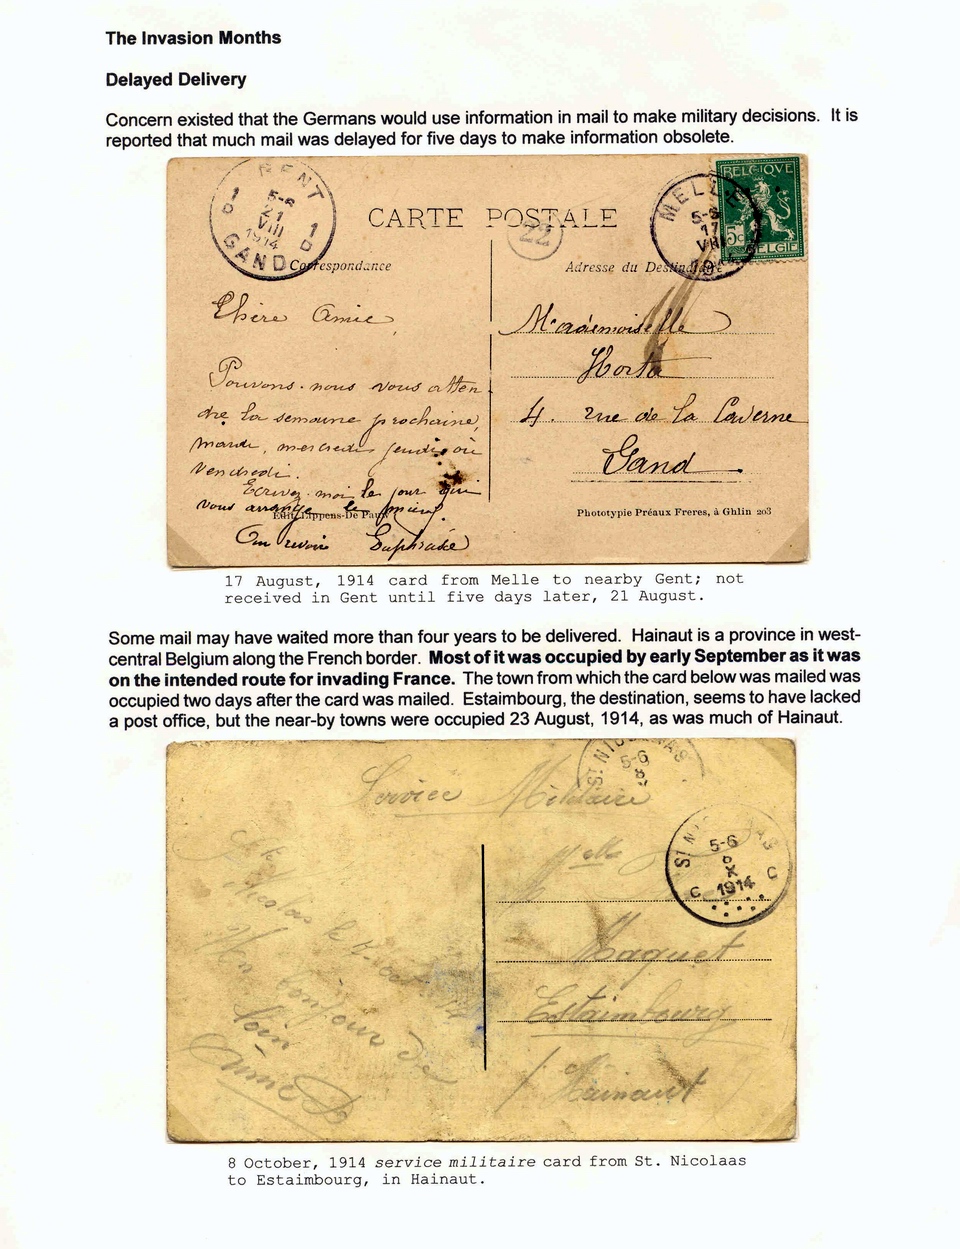 The Invasion Months
Delayed Delivery
Concern existed that the Germans would use information in mail to make military decisions. It is
reported that much mail was delayed for five days to make information obsolete.
GENT
1D 1D
5-6
21
VIII
1914
GAND
CARTE POSTALE
22
MELLE
5-6
17
VIII
BELGIQUE
5c
BELGIE
Correspondance
Adresse du Destinataire
Chère Amie,
Pouvons-nous vous atten
dre la semaine prochaine,
mardi, mercredi jeudi ou
vendredi.
Ecrivez-moi le jour qui
vous arrange le mieux.
Au revoir Euphrasie
Mademoiselle
Horta
4. rue de la Caverne
Gand.
Edit. Lippens-De Pauw
Phototypie Préaux Freres, à Ghlin 203
17 August, 1914 card from Melle to nearby Gent; not
received in Gent until five days later, 21 August.
Some mail may have waited more than four years to be delivered. Hainaut is a province in west-
central Belgium along the French border. Most of it was occupied by early September as it was
on the intended route for invading France. The town from which the card below was mailed was
occupied two days after the card was mailed. Estaimbourg, the destination, seems to have lacked
a post office, but the near-by towns were occupied 23 August, 1914, as was much of Hainaut.
ST NICOLAAS
5-6
8
Service Militaire
ST NICOLAAS
5-6
8
X
C 1914 C
Melle
Maquet
Estaimbourg
Hainaut
St
Nicolas le
bonjour de
loin
8 October, 1914 service militaire card from St. Nicolaas
to Estaimbourg, in Hainaut.